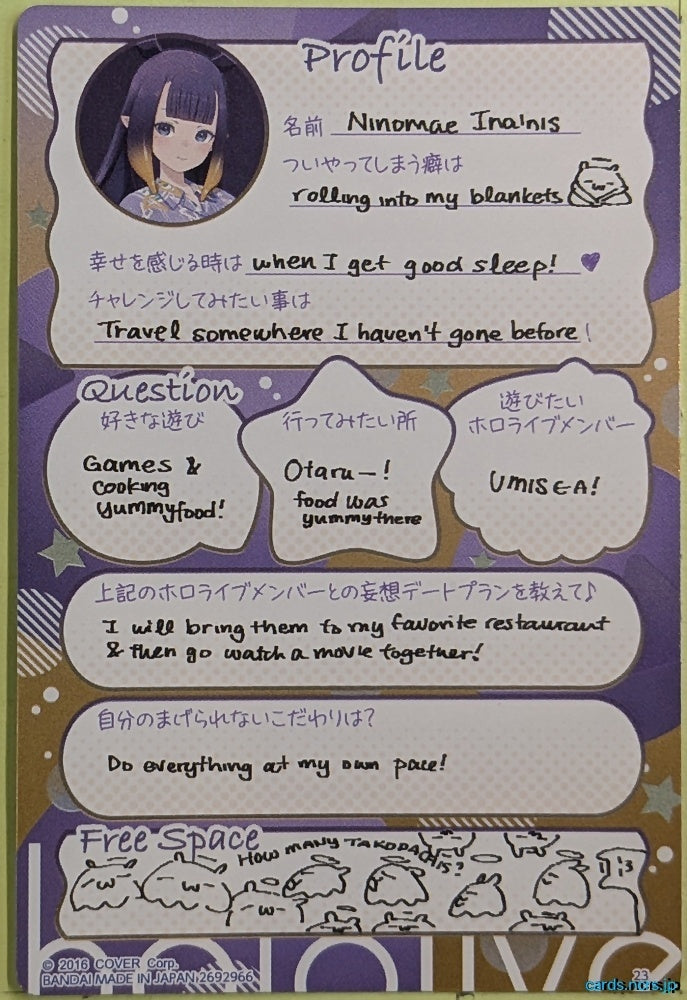 Profile
名前 Ninomae Ina'nis
ついやってしまう癖は
rolling into my blankets
幸せを感じる時は when I get good sleep!
チャレンジしてみたい事は
Travel somewhere I haven't gone before!
Question
好きな遊び
Games &
cooking
yummy food!
行ってみたい所
Otaruー!
food was
yummy there
遊びたい
ホロライブメンバー
UMISEA!
上記のホロライブメンバーとの妄想デートプランを教えて♪
I will bring them to my favorite restaurant
& then go watch a movie together!
自分のまげられないこだわりは?
Do everything at my own pace!
Free Space
HOW MANY TAKODACHIS?
hololive
© 2016 COVER Corp.
BANDAI MADE IN JAPAN 2692966
23
cards.ncrs.jp